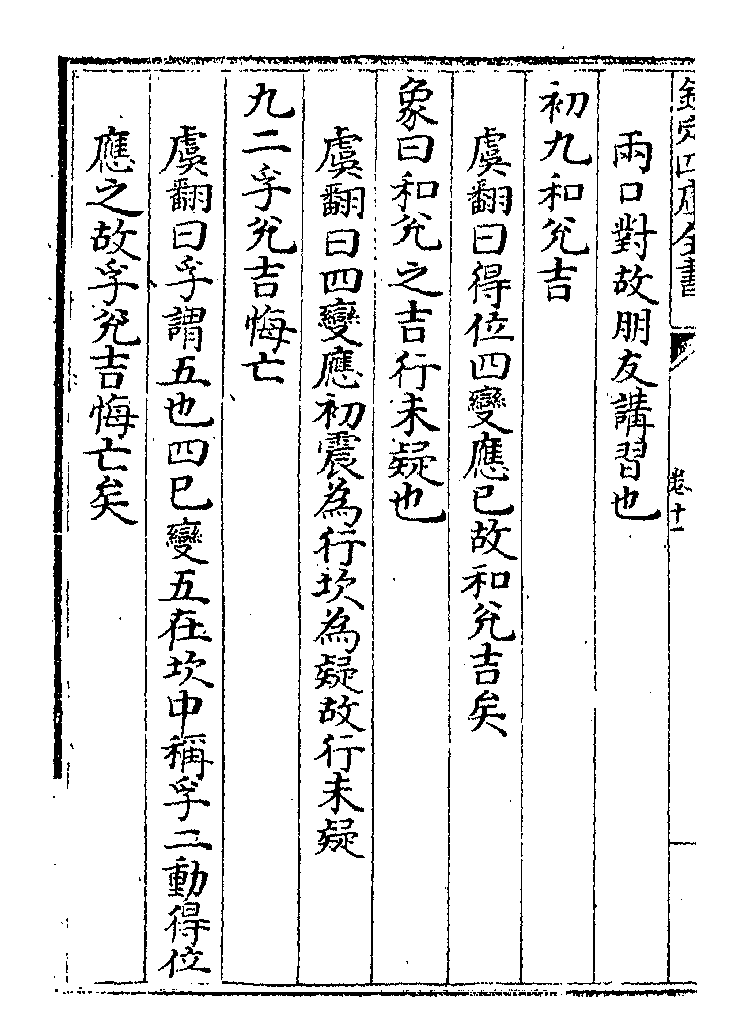 欽定四庫全書
卷十一
兩口對故朋友講習也
初九和兊吉
虞翻曰得位四變應已故和兊吉矣
象曰和兊之吉行未疑也
虞翻曰四變應初震為行坎為疑故行未疑
九二孚兊吉悔亡
虞翻曰孚謂五也四已變五在坎中稱孚二動得位
應之故孚兊吉悔亡矣